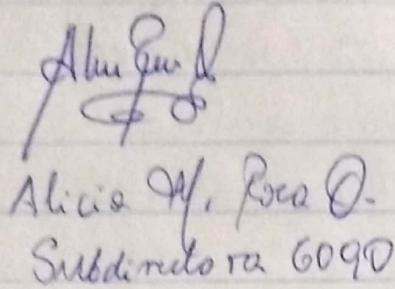 Alicia M. Roca O.
Subdirectora 6090